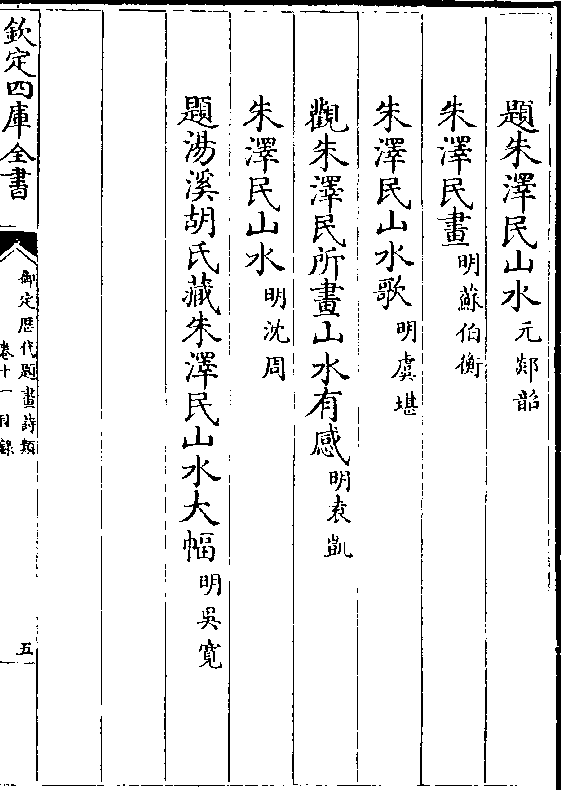 題朱澤民山水元鄔韶
朱澤民畫明蘇伯衡
朱澤民山水歌明虞堪
觀朱澤民所畫山水有感明袁凱
朱澤民山水明沈周
題湯溪胡氏藏朱澤民山水大幅明吳寬
欽定四庫全書
御定歴代題畫詩類
卷十一目錄
五